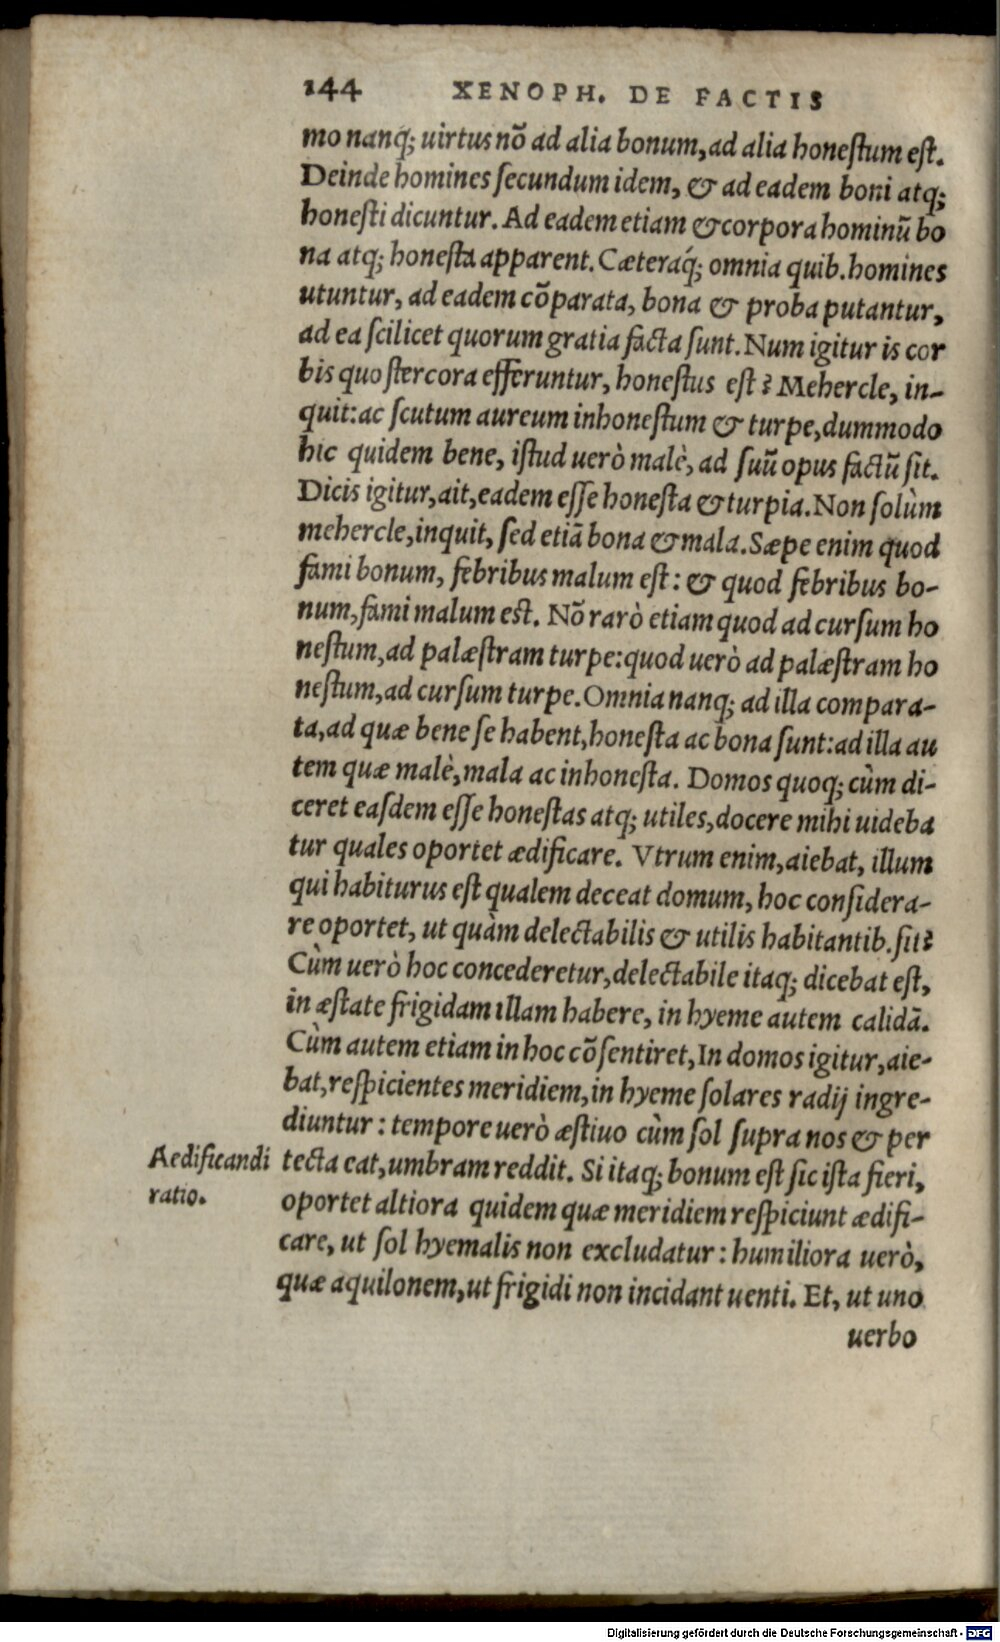 144 XENOPH. DE FACTIS
mo nanq; uirtus nõ ad alia bonum, ad alia honeſtum eſt.
Deinde homines ſecundum idem, & ad eadem boni atq;
honeſti dicuntur. Ad eadem etiam & corpora hominũ bo
na atq; honeſta apparent. Cæteraq́; omnia quib. homines
utuntur, ad eadem cõparata, bona & proba putantur,
ad ea ſcilicet quorum gratia facta ſunt. Num igitur is cor
bis quo ſtercora efferuntur, honeſtus eſt? Mehercle, in-
quit: ac ſcutum aureum inhoneſtum & turpe, dummodo
hic quidem bene, iſtud uerò malè, ad ſuũ opus factũ ſit.
Dicis igitur, ait, eadem eſſe honeſta & turpia. Non ſolùm
mehercle, inquit, ſed etiã bona & mala. Sæpe enim quod
fami bonum, febribus malum eſt: & quod febribus bo-
num, fami malum est. Nõ rarò etiam quod ad curſum ho
neſtum, ad palæſtram turpe: quod uerò ad palæſtram ho
neſtum, ad curſum turpe. Omnia nanq; ad illa compara-
ta, ad quæ bene ſe habent, honeſta ac bona ſunt: ad illa au
tem quæ malè, mala ac inhoneſta. Domos quoq; cùm di-
ceret eaſdem eſſe honeſtas atq; utiles, docere mihi uideba
tur quales oportet ædificare. Vtrum enim, aiebat, illum
qui habiturus eſt qualem deceat domum, hoc conſidera-
re oportet, ut quàm delectabilis & utilis habitantib. ſit?
Cùm uerò hoc concederetur, delectabile itaq; dicebat eſt,
in æſtate frigidam illam habere, in hyeme autem calidã.
Cùm autem etiam in hoc cõſentiret, In domos igitur, aie-
bat, reſpicientes meridiem, in hyeme ſolares radij ingre-
diuntur: tempore uerò æſtiuo cùm ſol ſupra nos & per
Aedificandi ratio.
tecta eat, umbram reddit. Si itaq; bonum eſt ſic iſta fieri,
oportet altiora quidem quæ meridiem reſpiciunt ædifi-
care, ut ſol hyemalis non excludatur: humiliora uerò,
quæ aquilonem, ut frigidi non incidant uenti. Et, ut uno
uerbo
Digitalisierung gefördert durch die Deutsche Forschungsgemeinschaft - DFG